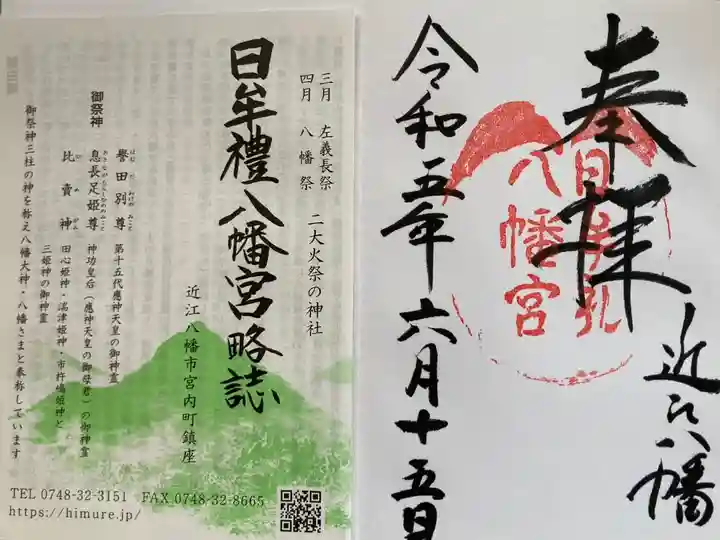 三月 左義長祭
四月 八幡祭
二大火祭の神社
日牟禮八幡宮略誌
近江八幡市宮内町鎮座
御祭神
誉田別尊 第十五代應神天皇の御神霊
息長足姫尊 神功皇后（應神天皇の御母君）の御神霊
比賣神 田心姫神・湍津姫神・市杵嶋姫神と
三姫神の御神霊
御祭神三柱の神を称え八幡大神・八幡さまと奉称しています
TEL 0748-32-3151 FAX 0748-32-8665
https://himure.jp/
近江八幡
奉拝
日牟礼
八幡宮
令和五年六月十五日